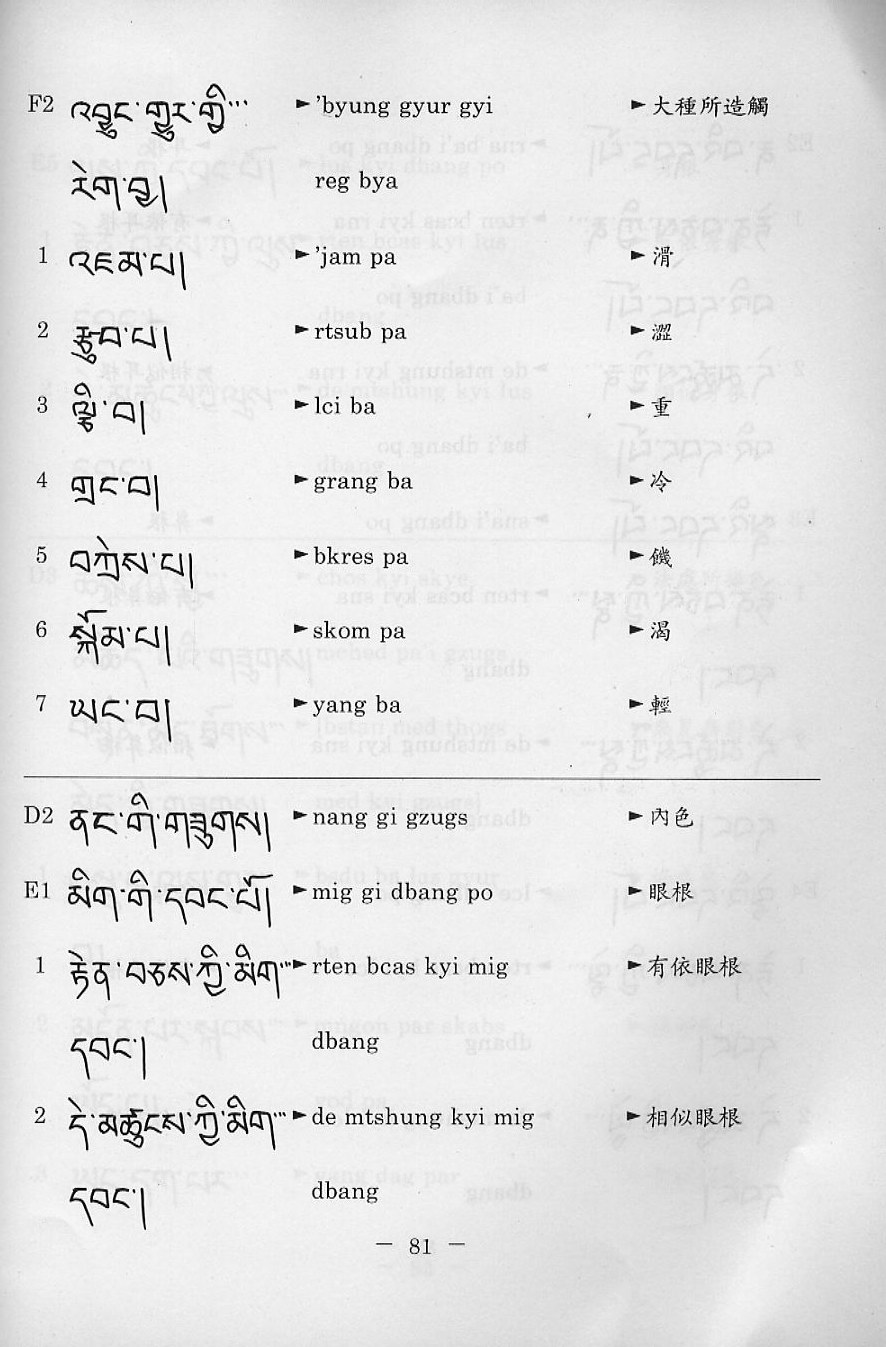 F2 འབྱུང་གྱུར་གྱི… ►'byung gyur gyi ►大種所造觸
རེག་བྱ། reg bya
1 འཇམ་པ། ►'jam pa ►滑
2 རྩུབ་པ། ►rtsub pa ►澀
3 ལྕི་བ། ►lci ba ►重
4 གྲང་བ། ►grang ba ►冷
5 བཀྲེས་པ། ►bkres pa ►饑
6 སྐོམ་པ། ►skom pa ►渴
7 ཡང་བ། ►yang ba ►輕
D2 ནང་གི་གཟུགས། ►nang gi gzugs ►內色
E1 མིག་གི་དབང་པོ། ►mig gi dbang po ►眼根
1 རྟེན་བཅས་ཀྱི་མིག… ►rten bcas kyi mig ►有依眼根
དབང་། dbang
2 དེ་མཚུངས་ཀྱི་མིག… ►de mtshung kyi mig ►相似眼根
དབང་། dbang
— 81 —